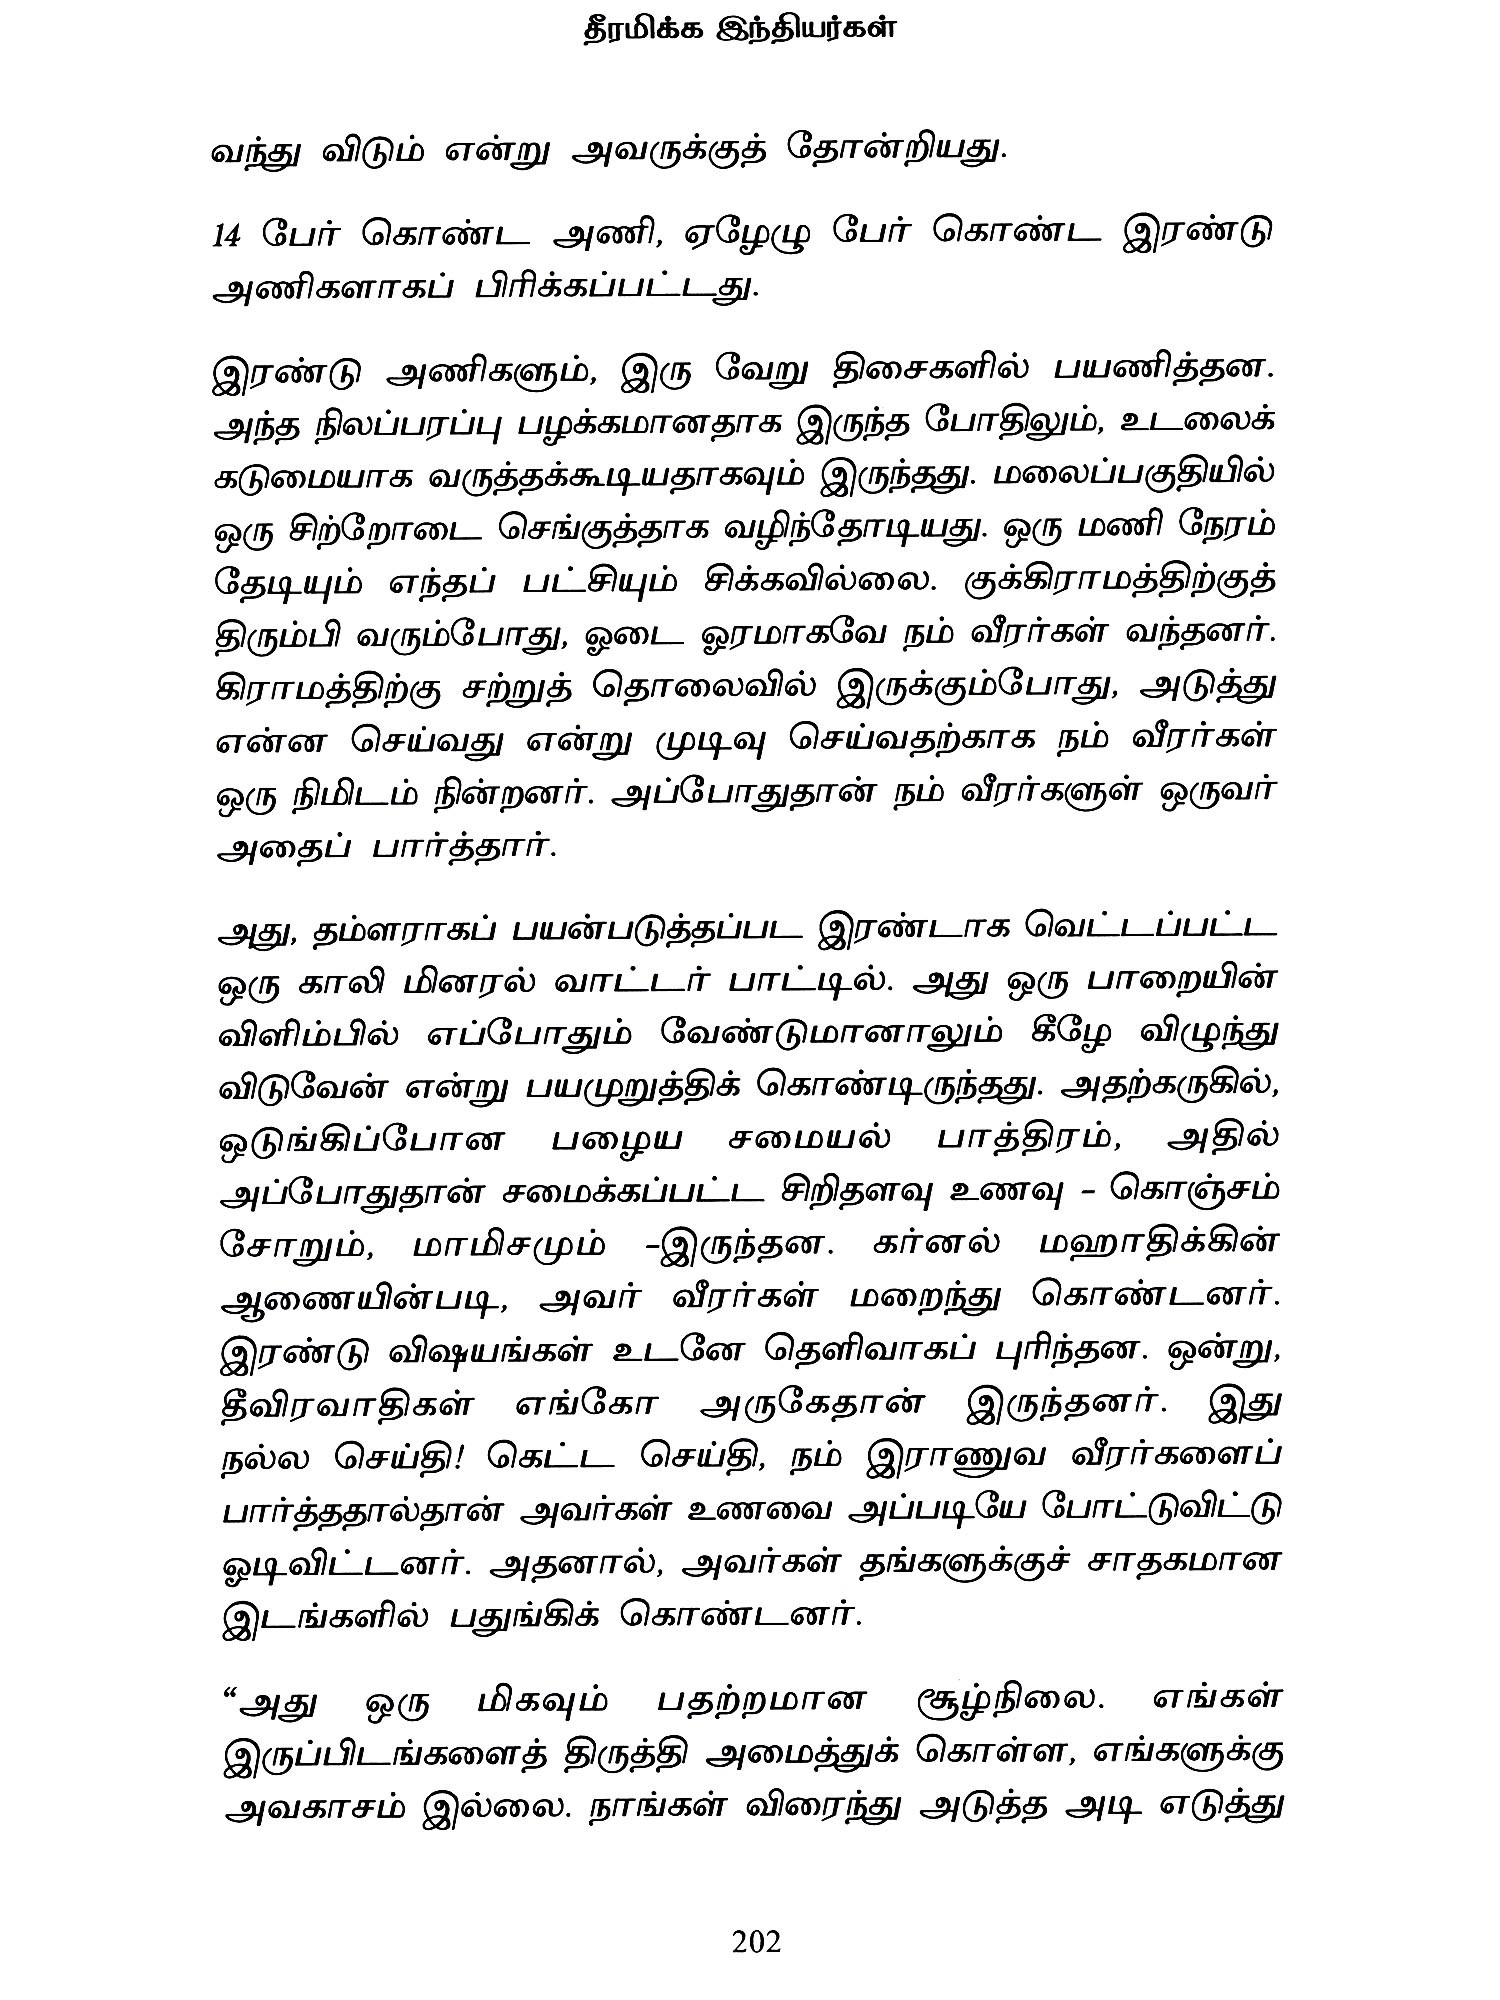 தீரமிக்க இந்தியர்கள்
வந்து விடும் என்று அவருக்குத் தோன்றியது.
14 பேர் கொண்ட அணி, ஏழேழு பேர் கொண்ட இரண்டு
அணிகளாகப் பிரிக்கப்பட்டது.
இரண்டு அணிகளும், இரு வேறு திசைகளில் பயணித்தன.
அந்த நிலப்பரப்பு பழக்கமானதாக இருந்த போதிலும், உடலைக்
கடுமையாக வருத்தக்கூடியதாகவும் இருந்தது. மலைப்பகுதியில்
ஒரு சிற்றோடை செங்குத்தாக வழிந்தோடியது. ஒரு மணி நேரம்
தேடியும் எந்தப் பட்சியும் சிக்கவில்லை. குக்கிராமத்திற்குத்
திரும்பி வரும்போது, ஓடை ஓரமாகவே நம் வீரர்கள் வந்தனர்.
கிராமத்திற்கு சற்றுத் தொலைவில் இருக்கும்போது, அடுத்து
என்ன செய்வது என்று முடிவு செய்வதற்காக நம் வீரர்கள்
ஒரு நிமிடம் நின்றனர். அப்போதுதான் நம் வீரர்களுள் ஒருவர்
அதைப் பார்த்தார்.
அது, தம்ளராகப் பயன்படுத்தப்பட இரண்டாக வெட்டப்பட்ட
ஒரு காலி மினரல் வாட்டர் பாட்டில். அது ஒரு பாறையின்
விளிம்பில் எப்போதும் வேண்டுமானாலும் கீழே விழுந்து
விடுவேன் என்று பயமுறுத்திக் கொண்டிருந்தது. அதற்கருகில்,
ஒடுங்கிப்போன பழைய சமையல் பாத்திரம், அதில்
அப்போதுதான் சமைக்கப்பட்ட சிறிதளவு உணவு – கொஞ்சம்
சோறும், மாமிசமும் –இருந்தன. கர்னல் மஹாதிக்கின்
ஆணையின்படி, அவர் வீரர்கள் மறைந்து கொண்டனர்.
இரண்டு விஷயங்கள் உடனே தெளிவாகப் புரிந்தன. ஒன்று,
தீவிரவாதிகள் எங்கோ அருகேதான் இருந்தனர். இது
நல்ல செய்தி! கெட்ட செய்தி, நம் இராணுவ வீரர்களைப்
பார்த்ததால்தான் அவர்கள் உணவை அப்படியே போட்டுவிட்டு
ஓடிவிட்டனர். அதனால், அவர்கள் தங்களுக்குச் சாதகமான
இடங்களில் பதுங்கிக் கொண்டனர்.
“அது ஒரு மிகவும் பதற்றமான சூழ்நிலை. எங்கள்
இருப்பிடங்களைத் திருத்தி அமைத்துக் கொள்ள, எங்களுக்கு
அவகாசம் இல்லை. நாங்கள் விரைந்து அடுத்த அடி எடுத்து
202